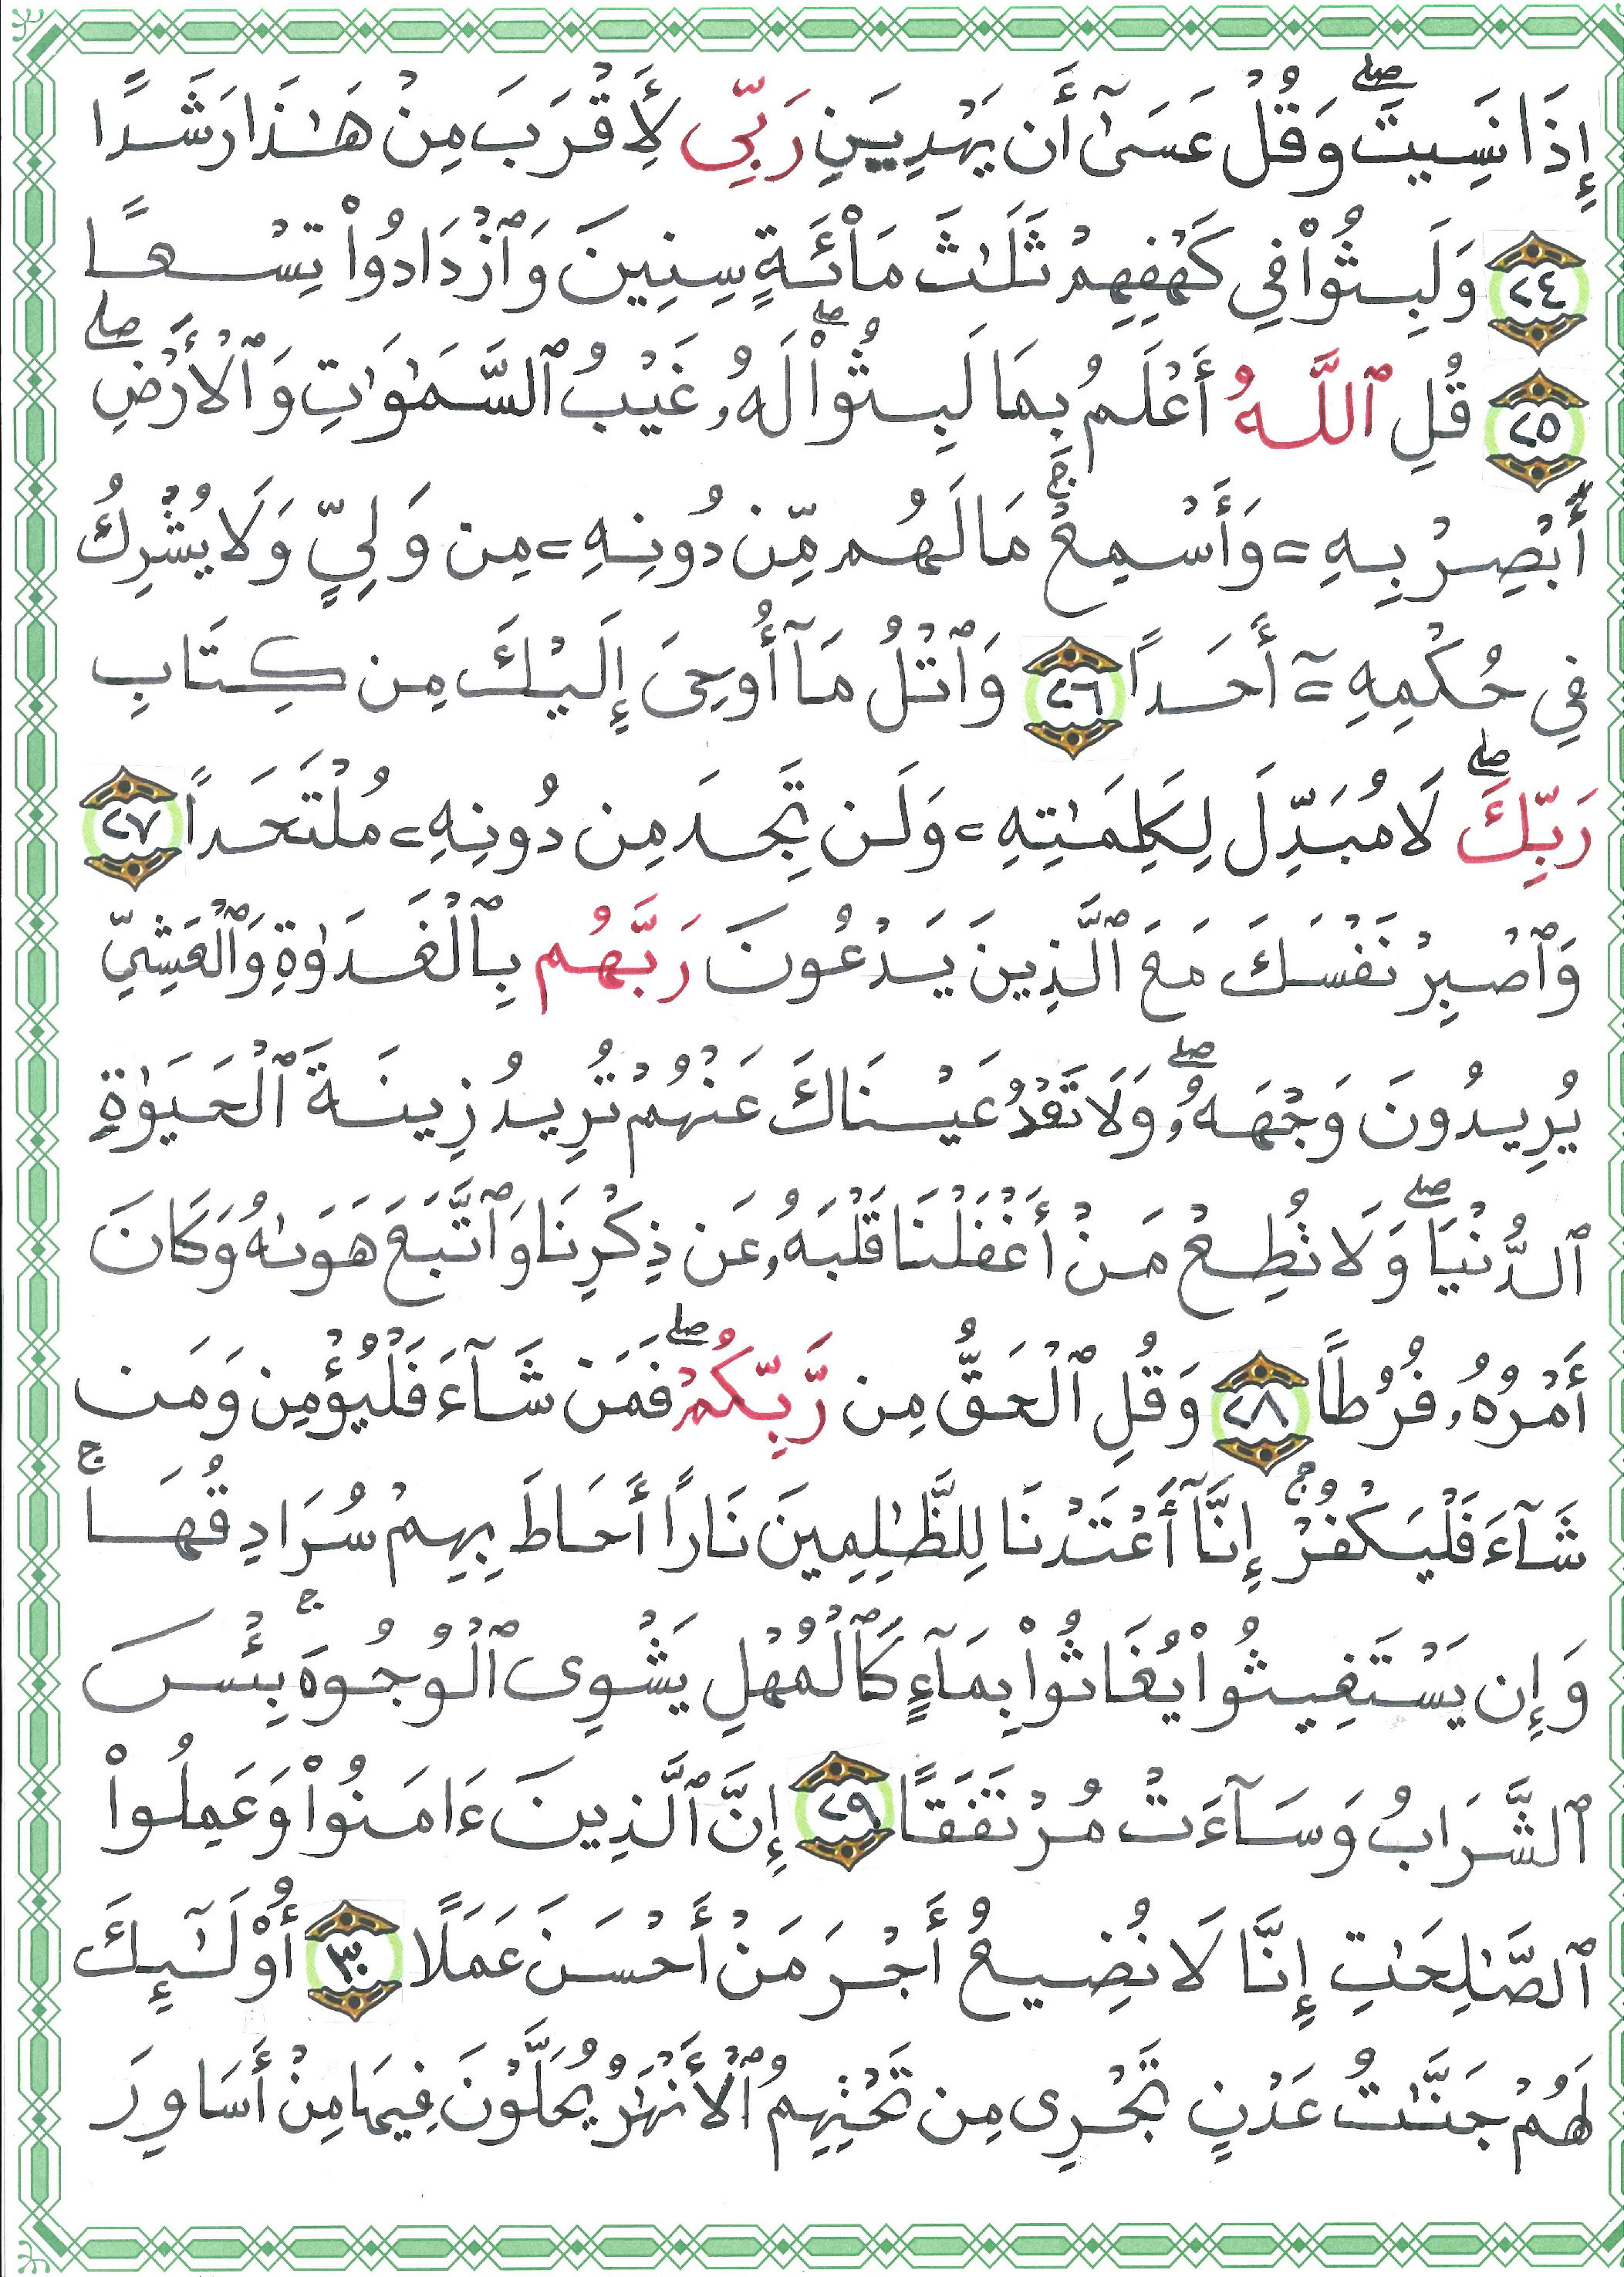 إِذَا نَسِيتَ ۖ وَقُلْ عَسَىٰٓ أَن يَهْدِيَنِ رَبِّى لِأَقْرَبَ مِنْ هَـٰذَا رَشَدًا
٢٤ وَلَبِثُوا۟ فِي كَهْفِهِمْ ثَلَـٰثَ مِا۟ئَةٍ سِنِينَ وَٱزْدَادُوا۟ تِسْعًا
٢٥ قُلِ ٱللَّهُ أَعْلَمُ بِمَا لَبِثُوا۟ ۖ لَهُۥ غَيْبُ ٱلسَّمَـٰوَٰتِ وَٱلْأَرْضِ ۖ
أَبْصِرْ بِهِۦ وَأَسْمِعْ ۚ مَا لَهُم مِّن دُونِهِۦ مِن وَلِيٍّ وَلَا يُشْرِكُ
فِي حُكْمِهِۦٓ أَحَدًا ٢٦ وَٱتْلُ مَآ أُوحِىَ إِلَيْكَ مِن كِتَابِ
رَبِّكَ ۖ لَا مُبَدِّلَ لِكَلِمَـٰتِهِۦ وَلَن تَجِدَ مِن دُونِهِۦ مُلْتَحَدًا ٢٧
وَٱصْبِرْ نَفْسَكَ مَعَ ٱلَّذِينَ يَدْعُونَ رَبَّهُم بِٱلْغَدَوٰةِ وَٱلْعَشِيِّ
يُرِيدُونَ وَجْهَهُۥ ۖ وَلَا تَعْدُ عَيْنَاكَ عَنْهُمْ تُرِيدُ زِينَةَ ٱلْحَيَوٰةِ
ٱلدُّنْيَا ۖ وَلَا تُطِعْ مَنْ أَغْفَلْنَا قَلْبَهُۥ عَن ذِكْرِنَا وَٱتَّبَعَ هَوَىٰهُ وَكَانَ
أَمْرُهُۥ فُرُطًا ٢٨ وَقُلِ ٱلْحَقُّ مِن رَّبِّكُمْ ۖ فَمَن شَآءَ فَلْيُؤْمِن وَمَن
شَآءَ فَلْيَكْفُرْ ۚ إِنَّآ أَعْتَدْنَا لِلظَّـٰلِمِينَ نَارًا أَحَاطَ بِهِمْ سُرَادِقُهَا ۚ
وَإِن يَسْتَغِيثُوا۟ يُغَاثُوا۟ بِمَآءٍ كَٱلْمُهْلِ يَشْوِى ٱلْوُجُوهَ ۚ بِئْسَ
ٱلشَّرَابُ وَسَآءَتْ مُرْتَفَقًا ٢٩ إِنَّ ٱلَّذِينَ ءَامَنُوا۟ وَعَمِلُوا۟
ٱلصَّـٰلِحَـٰتِ إِنَّا لَا نُضِيعُ أَجْرَ مَنْ أَحْسَنَ عَمَلًا ٣٠ أُو۟لَـٰٓئِكَ
لَهُمْ جَنَّـٰتُ عَدْنٍ تَجْرِى مِن تَحْتِهِمُ ٱلْأَنْهَـٰرُ يُحَلَّوْنَ فِيهَا مِنْ أَسَاوِرَ